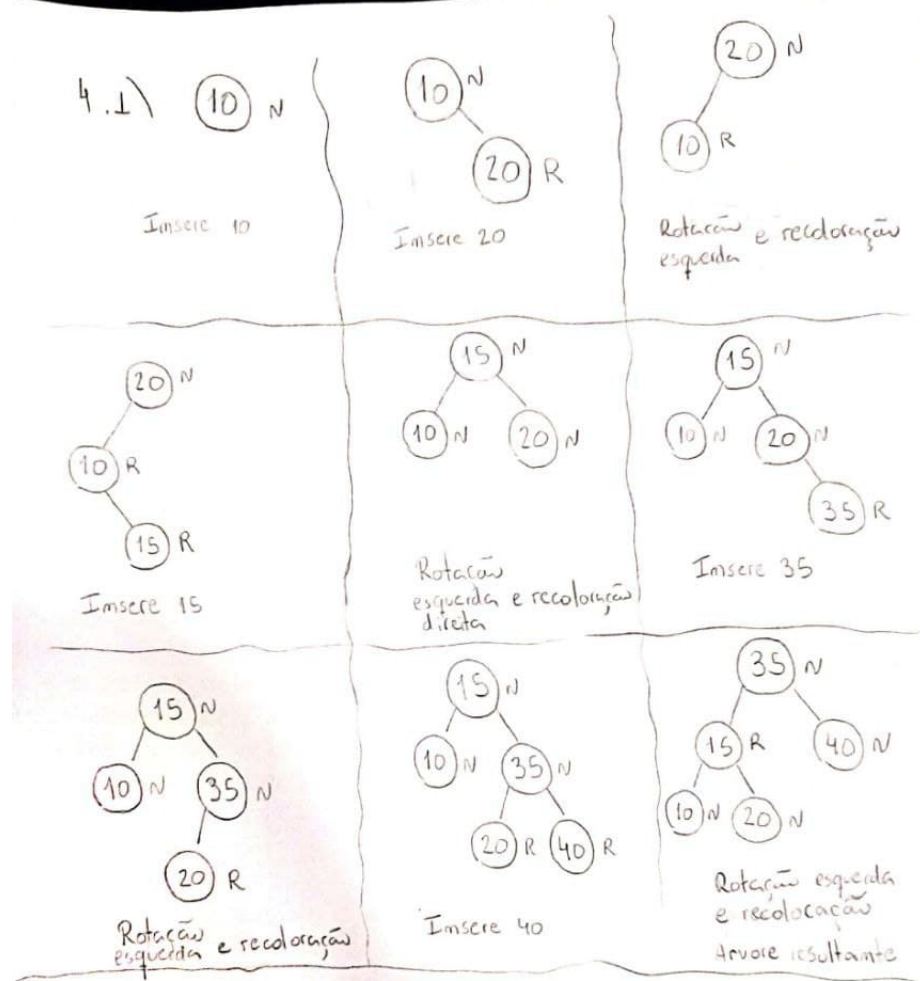 4.1)
10 N
Insere 10
10 N
20 R
Insere 20
20 N
10 R
Rotação e recoloração
esquerda
20 N
10 R
15 R
Insere 15
15 N
10 N 20 N
Rotação
esquerda e recoloração
direita
15 N
10 N 20 N
35 R
Insere 35
15 N
10 N 35 N
20 R
Rotação
esquerda e recoloração
15 N
10 N 35 N
20 R 40 R
Insere 40
35 N
15 R 40 N
10 N 20 N
Rotação esquerda
e recolocação
Arvore resultante